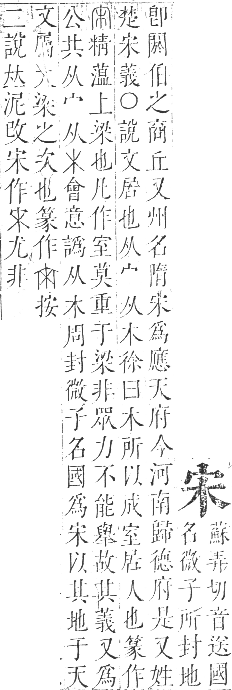 宋
蘇弄切音送國
名微子所封地
卽閼伯之商丘又州名隋宋爲應天府今河南歸德府是又姓
楚宋義○說文居也从宀从木徐曰木所以成室居人也篆作
𡧍精薀上梁也凡作室莫重于梁非眾力不能舉故其義又爲
公共从宀从釆會意譌从木周封微子名國爲宋以其地于天
文屬大梁之次也篆作𡧍按
二說𠀤泥改宋作𡧍尤非